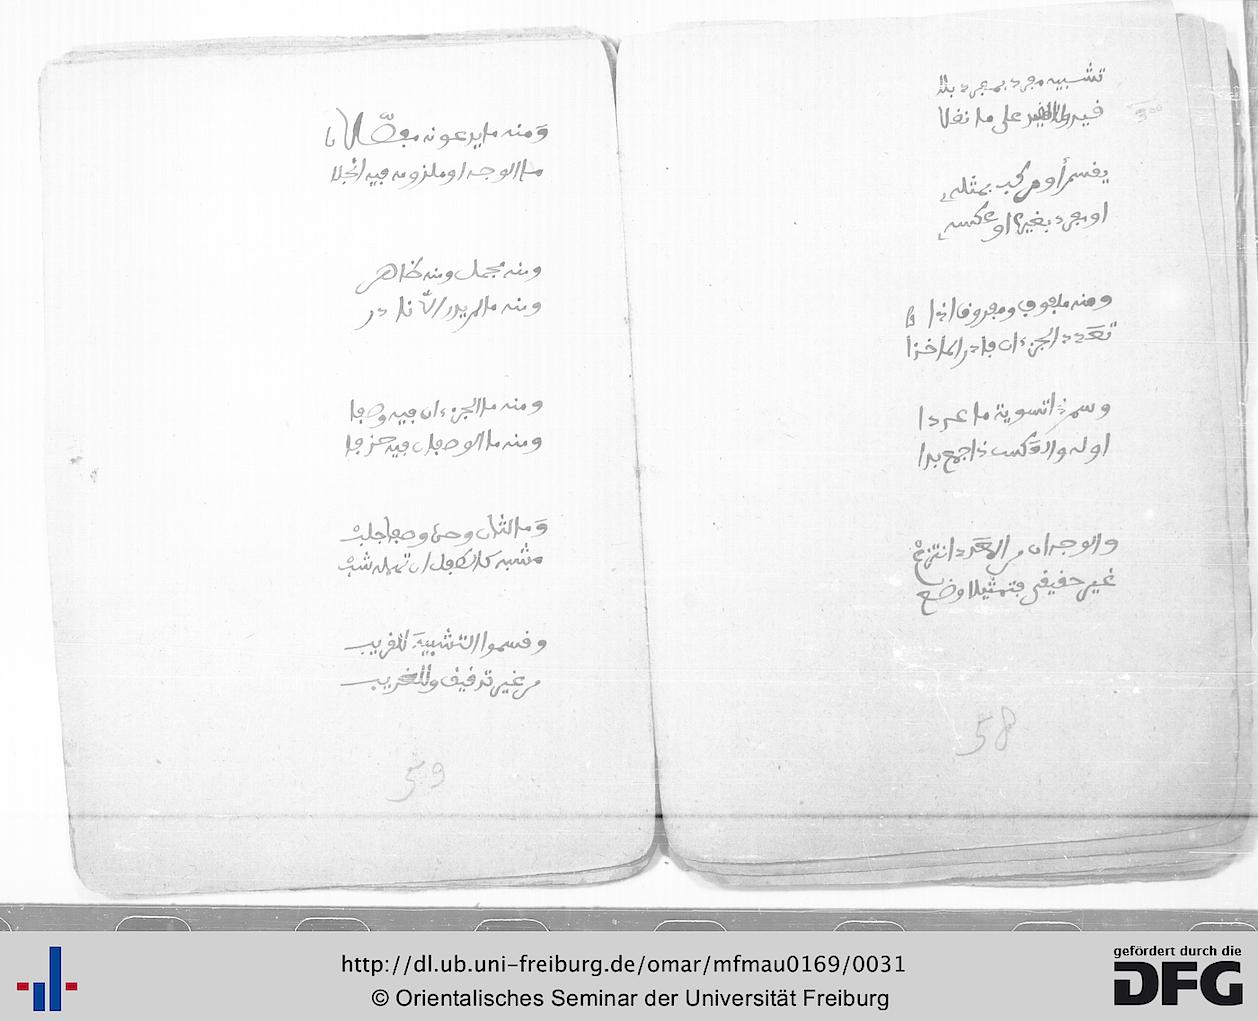 تشبيه مفرد بمفرد بلا
قيد على ما نقلا
يقسم أو مركب بمثله
او مفرد بغيره او عكسه
ومنه ملفوف ومفروق اذا
تعدد الجزءان فادر الماخذا
وسم ذا تسوية ما عددا
اوله والعكس ذا جمع بدا
والوجه ان من المعدد انتزع
غير حقيقي فتمثيلا وضع
58
وَمنه ما يدعونه مفصّلا
ما الوجه او ملزومه فيه انجلا
ومنه مجمل ومنه ظاهر
ومنه ما لم يدر الّا نادر
ومنه ما الجزءان فيه وصفا
ومنه ما الوصفان فيه حذفا
وَما لثان وصفا جلبْ
مشبه كالطفل ان تهمله شبْ
وقسموا التشبيهَ للقريب
من غير تدقيق وللغريب
59
http://dl.ub.uni-freiburg.de/omar/mfmau0169/0031
© Orientalisches Seminar der Universität Freiburg
gefördert durch die
DFG